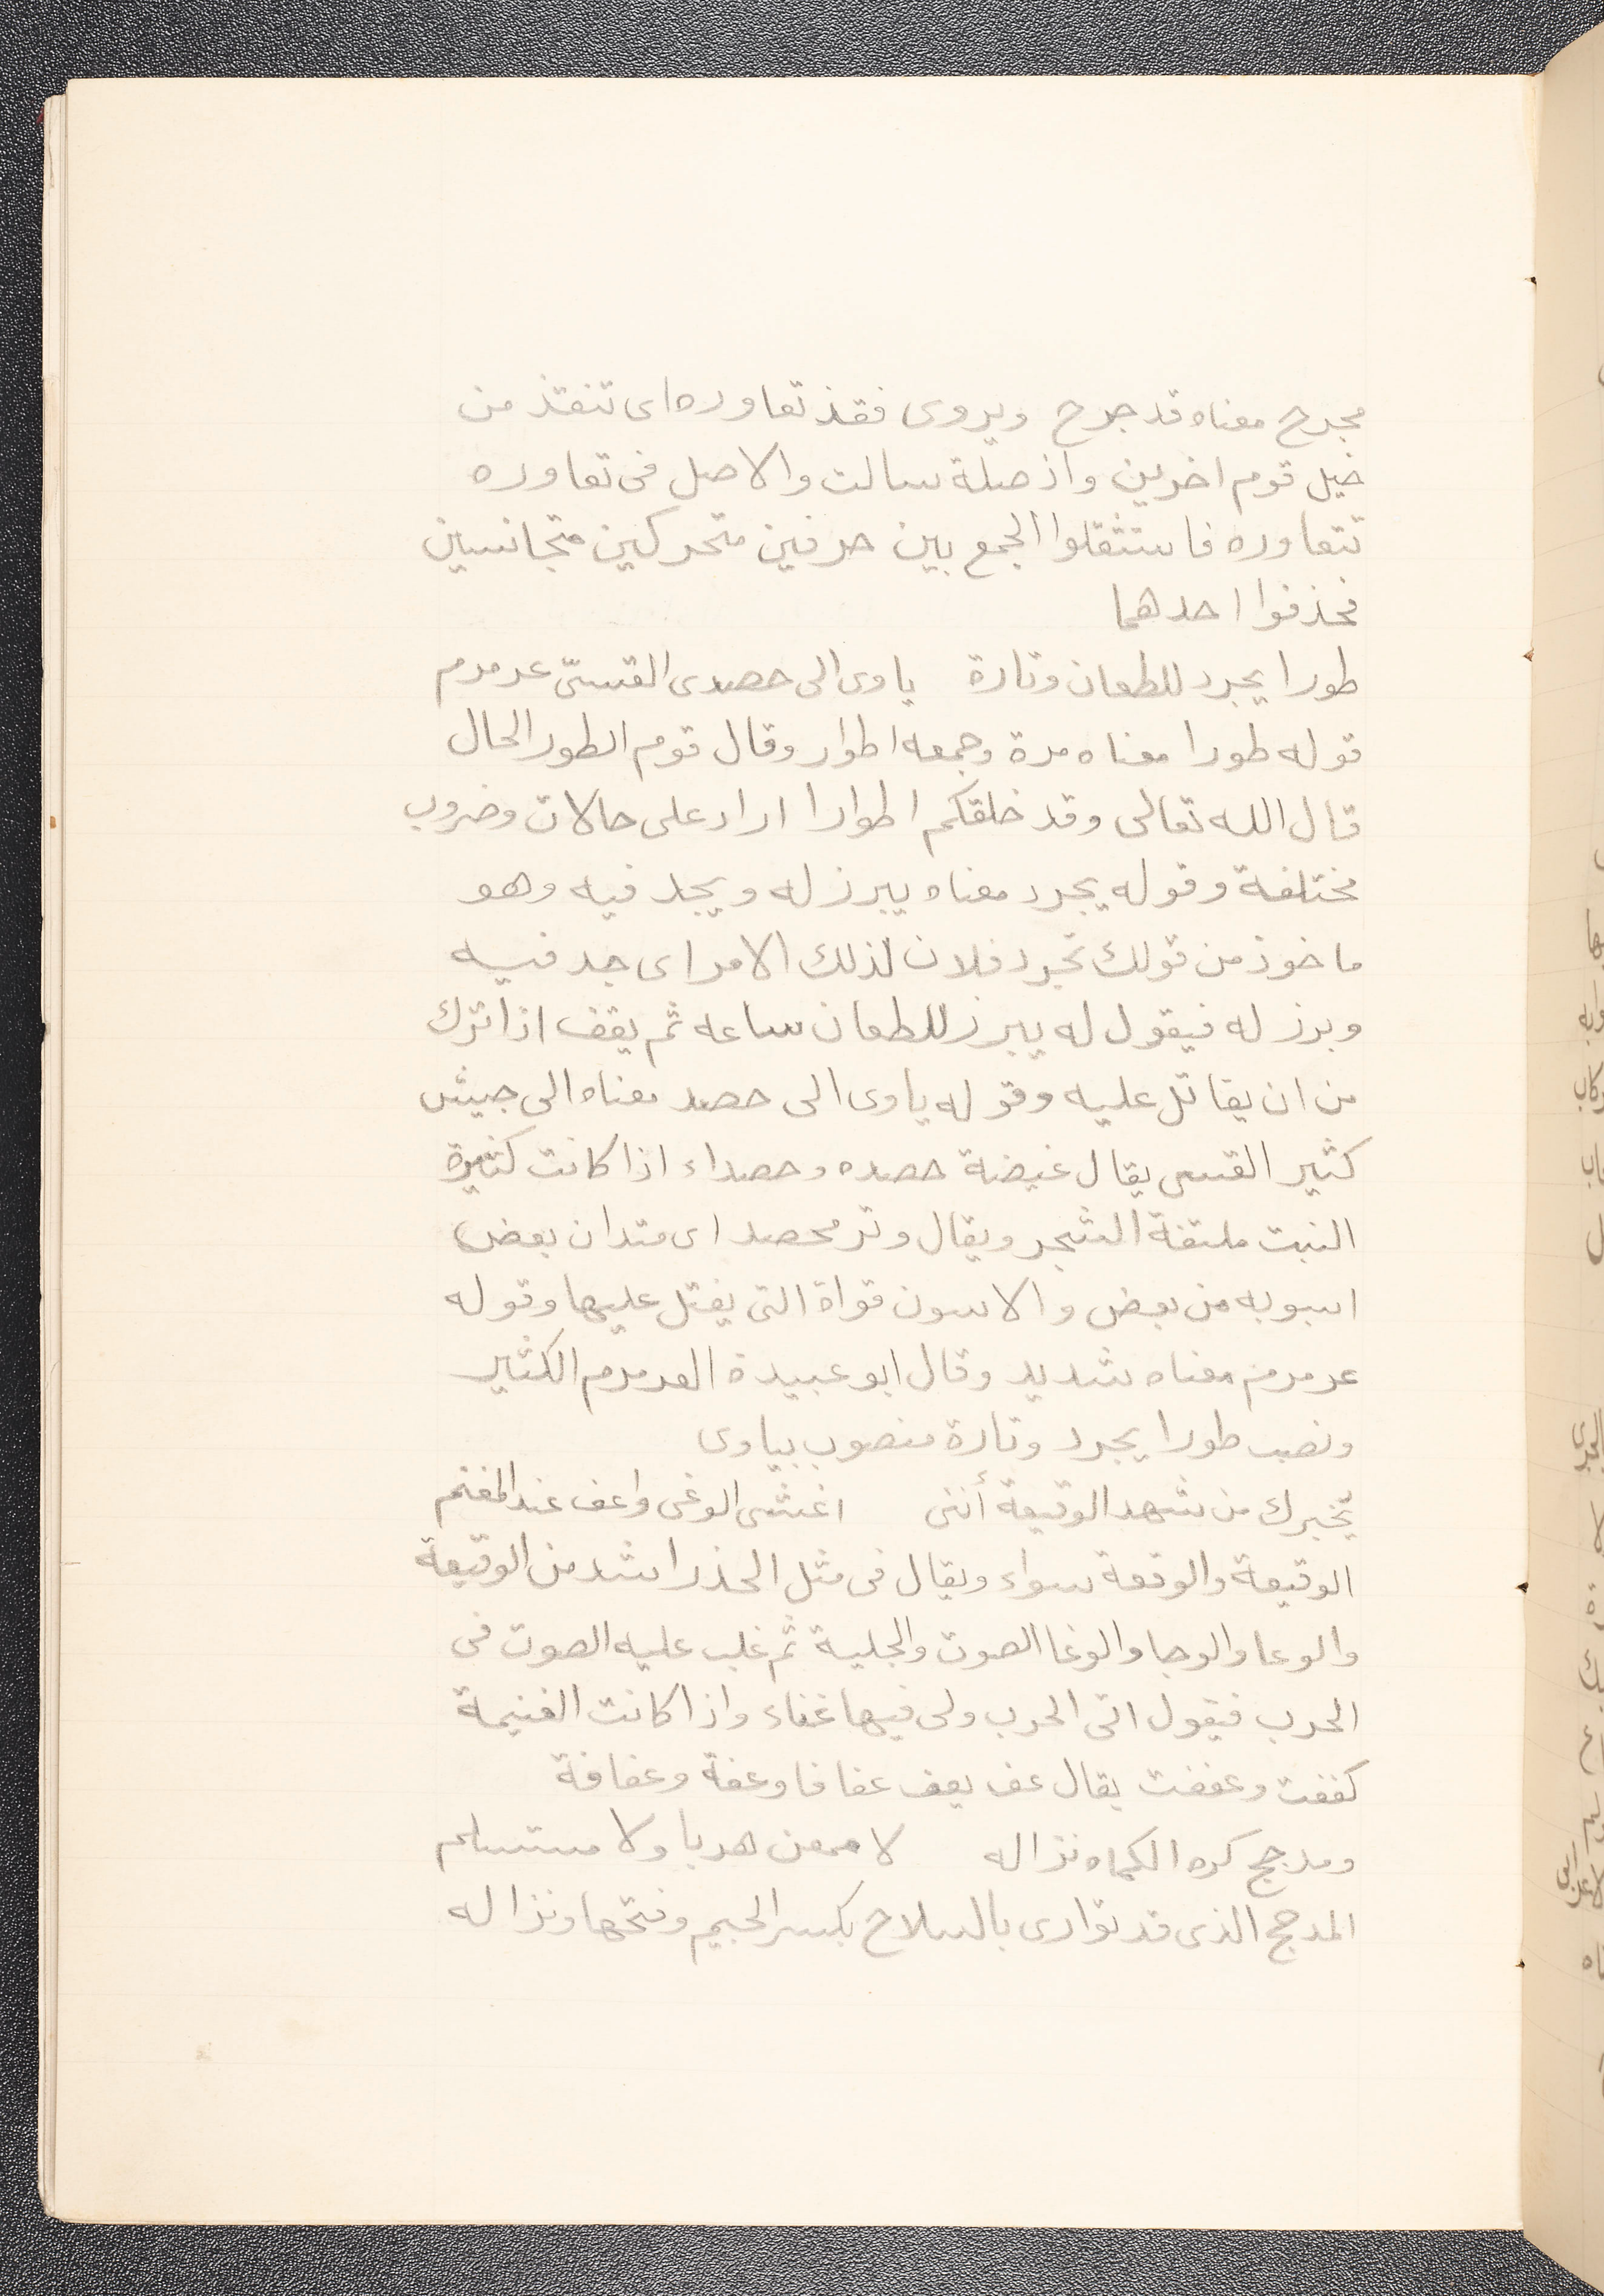 مجرح معناه قد جرح ويروى فقذ تعاوره اى تنقذ من
خيل قوم اخرين واذ صلة سالت والاصل فى تعاوره
تتعاوره فاستثقلوا الجمع بين حرفين متحركين متجانسين
فحذفوا احدهما
طورا يجرد للطعان وتارة ياوى الى حصدى القسىّ عرمرم
قوله طورا معناه مرة وجمعه اطوار وقال قوم الطور الحال
قال الله تعالى وقد خلقكم اطوارا اراد على حالات وضروب
مختلفة وقوله يجرد معناه يبرز له ويجد فيه وهو
ماخوذ من قولك تجرد فلان لذلك الامر اى جد فيه
وبرز له فيقول له يبرز للطعان ساعه ثم يقف اذا ترك
من ان يقاتل عليه وقوله ياوى الى حصد معناه الى جيش
كثير القسى يقال غيضة حصده وحصداء اذا كانت كثيرة
النبت ملتفة الشجر ويقال وتر محصد اى متدان بعض
اسوبه من بعض والاسون قواة التى يفتل عليها وقوله
عرمرم معناه شديد وقال ابو عبيدة العرمرم الكثير
ونصب طورا يجرد وتارة منصوب بياوى
يخبرك من شهد الوقيعة أننى اغشى الوغى واعف عند المغنم
الوقيعة والوقعة سواء ويقال فى مثل الحذر اشد من الوقيعة
والوعا والوحا والوغا الصوت والجلبة ثم غلب عليه الصوت فى
الحرب فيقول اتى الحرب ولى فيها غناء واذا كانت الغنيمة
كففت وعففت يقال عف يعف عفافا وعفة وعفافة
ومدجج كره الكماه نزاله لا ممعن هربا ولا مستسلم
المدجج الذى قد توارى بالسلاح بكسر الجيم وفتحها ونزاله